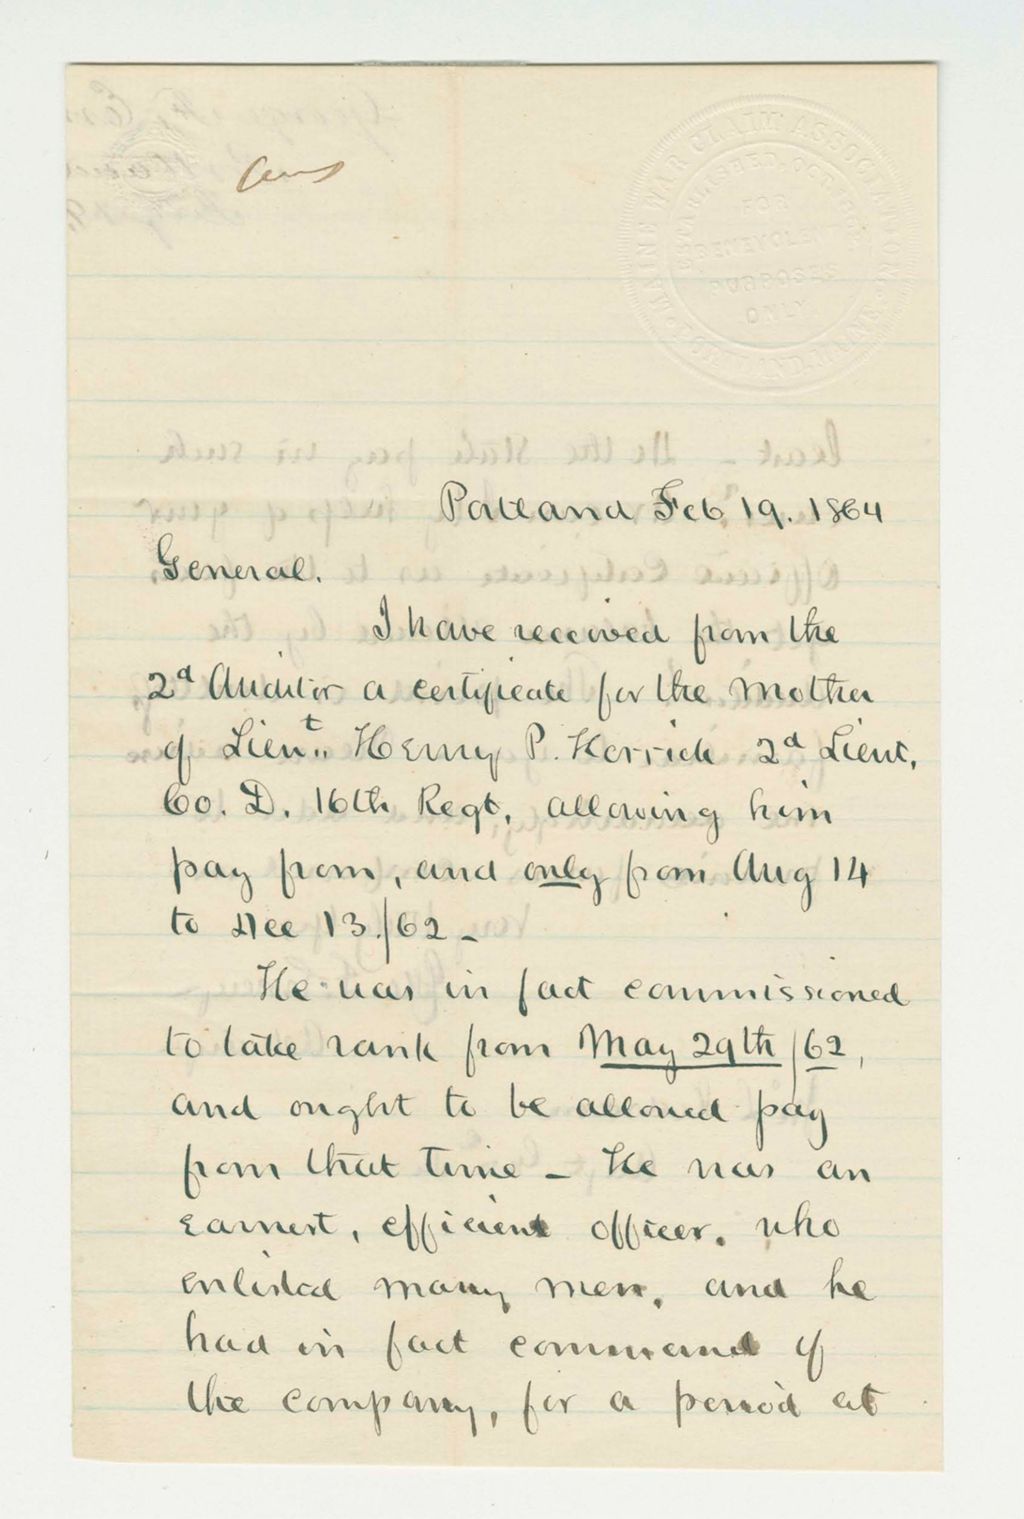 Ans
MAINE WAR CLAIM ASSOCIATION
PORTLAND, MAINE
ESTABLISHED OCT.
FOR
BENEVOLENT
PURPOSES
ONLY.
Portland Feb 19. 1864
General.
I have received from the
2d Auditor a certificate for the Mother
of Lieut.. Henry P. Herrick 2d Lieut,
Co. D. 16th Regt, allowing him
pay from, and only from Aug 14
to Dec 13./62 -
He was in fact commissioned
to take rank from May 29th /62,
and ought to be allowed pay
from that time - He was an
earnest, efficient officer. who
enlisted many men, and he
had in fact command of
the company, for a period at